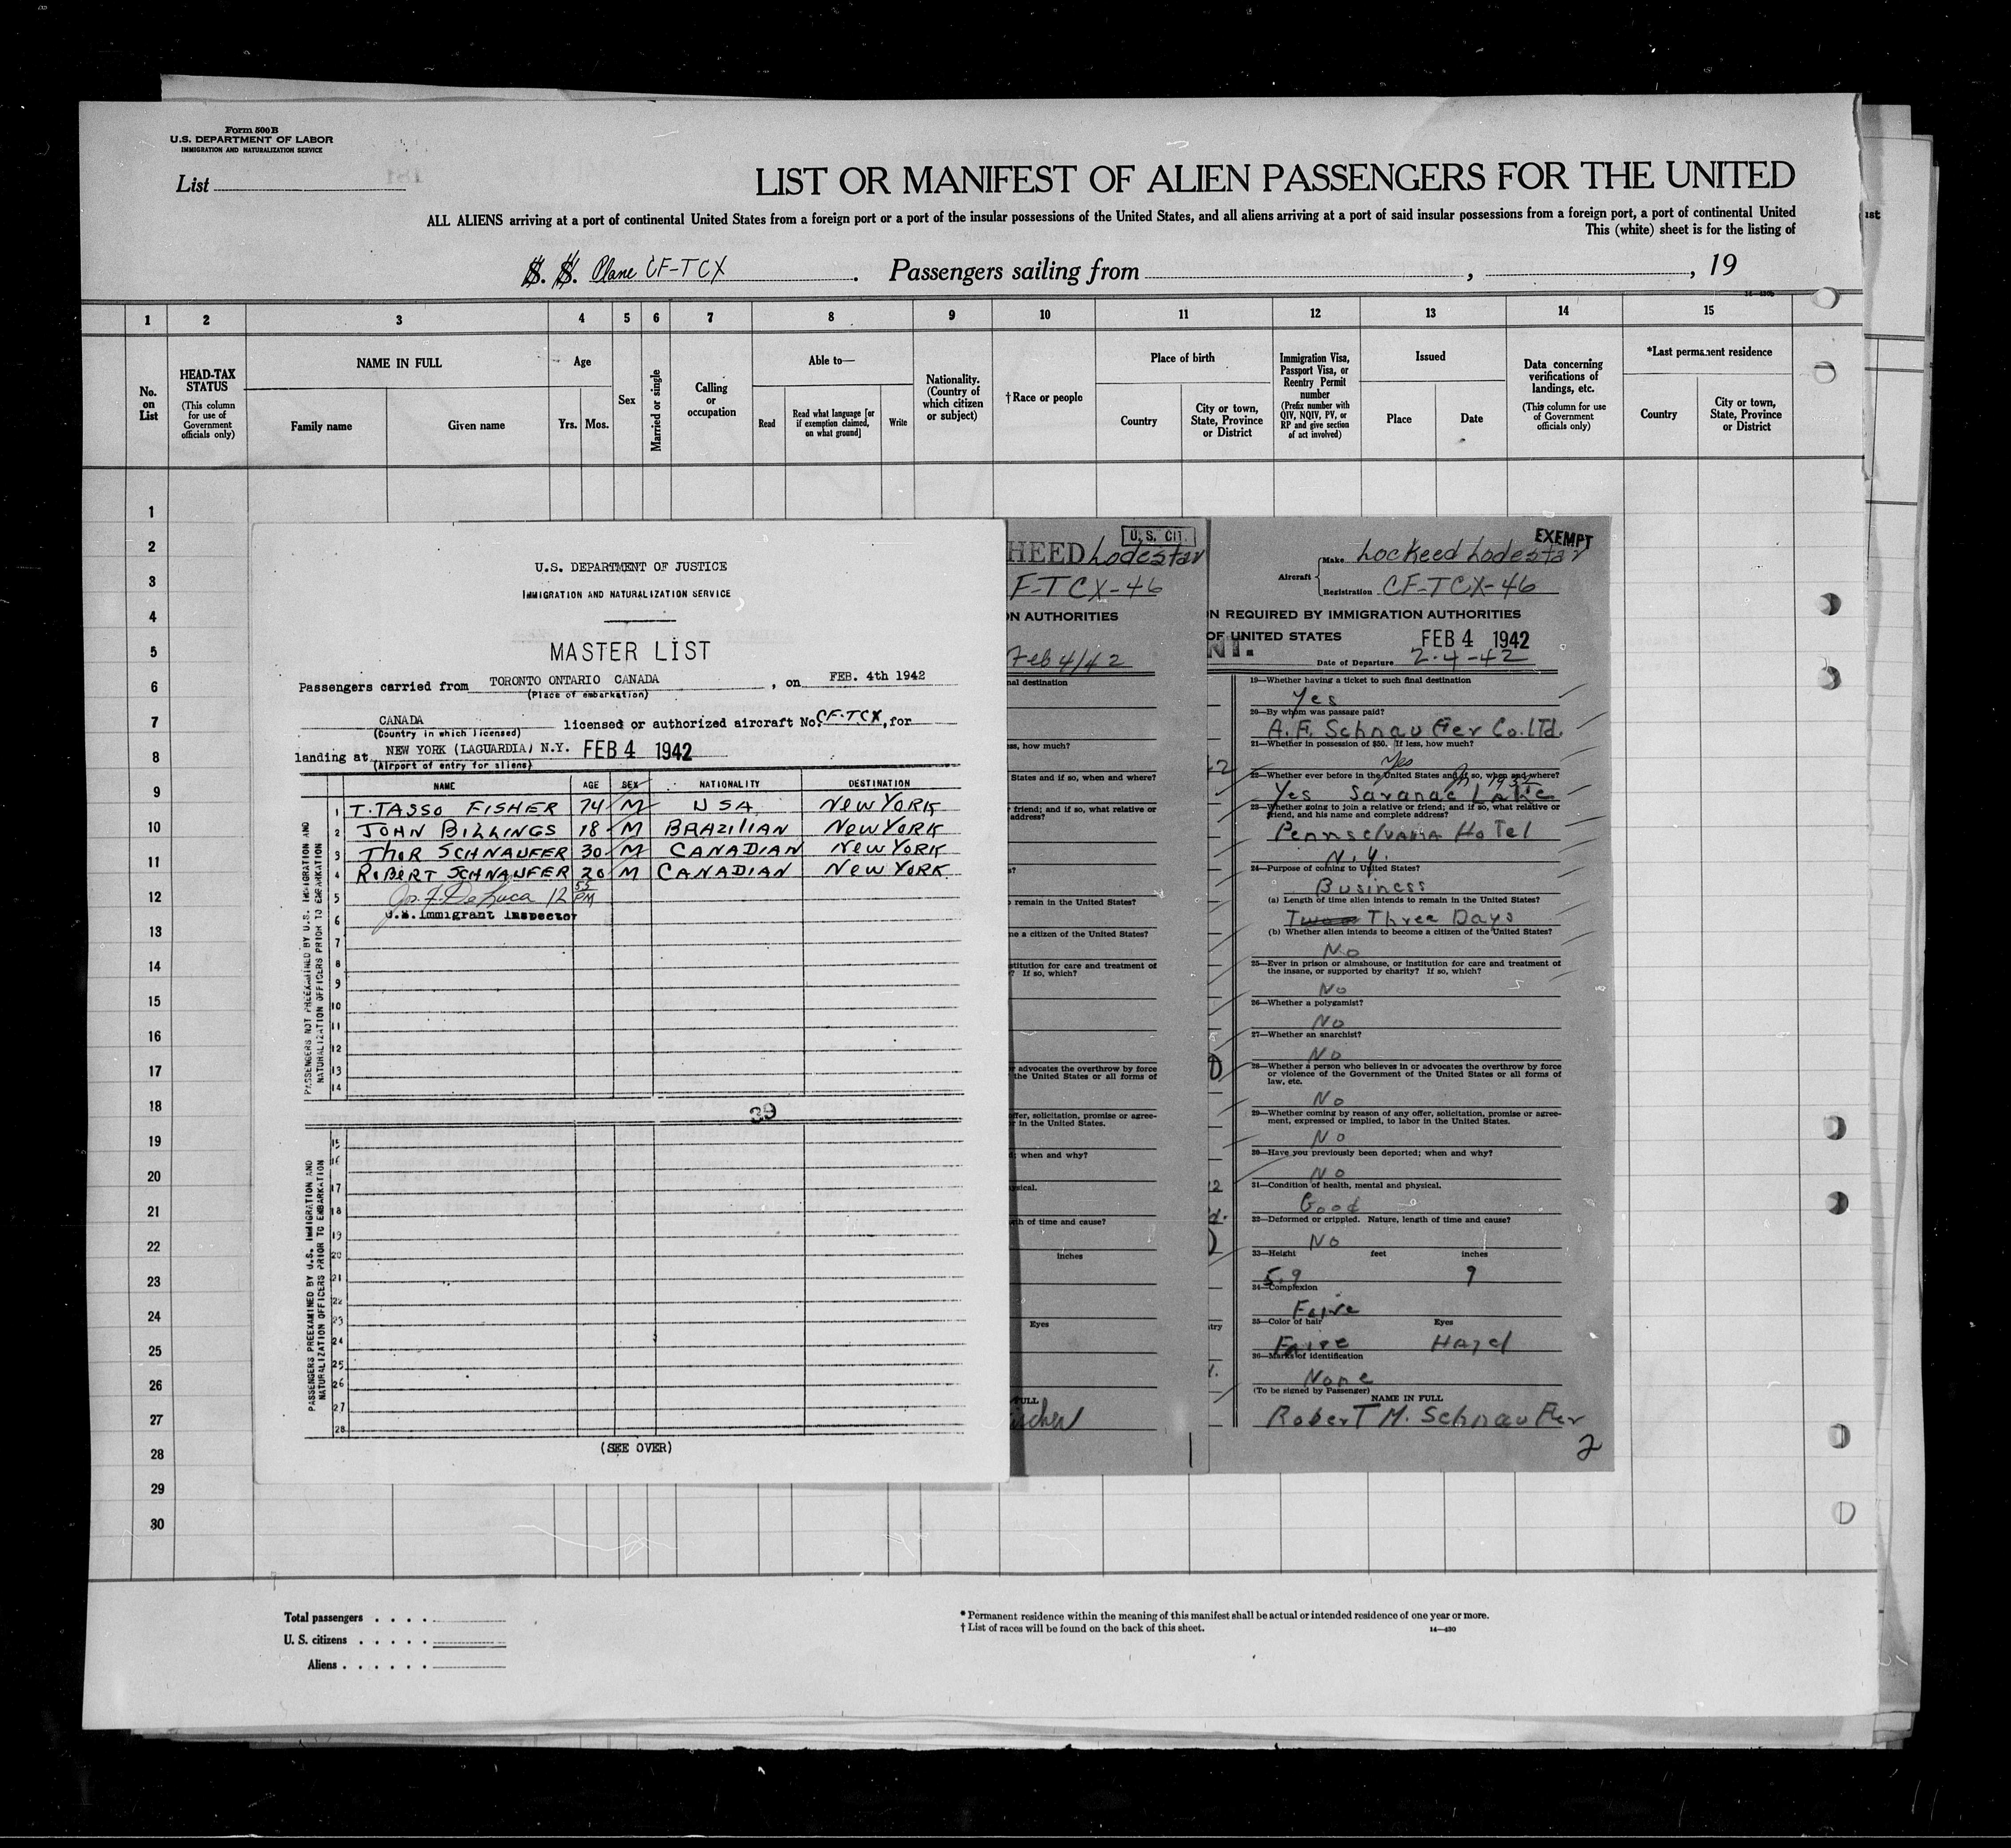 Form 500B
U.S. DEPARTMENT OF LABOR
IMMIGRATION AND NATURALIZATION SERVICE
List
LIST OR MANIFEST OF ALIEN PASSENGERS FOR THE UNITED
ALL ALIENS arriving at a port of continental United States from a foreign port or a port of the insular possessions of the United States, and all aliens arriving at a port of said insular possessions from a foreign port, a port of continental United
This (white) sheet is for the listing of
S. S. Plane CF-TCX. Passengers sailing from , , 19
1 2 3 4 5 6 7 8 9 10 11 12 13 14 15
No. on List
HEAD-TAX STATUS
(This column for use of Government officials only)
NAME IN FULL
Family name Given name
Age
Yrs. Mos.
Sex
Married or single
Calling or occupation
Able to—
Read
Read what language [or if exemption claimed, on what ground]
Write
Nationality. (Country of which citizen or subject)
†Race or people
Place of birth
Country
City or town, State, Province or District
Immigration Visa, Passport Visa, or Reentry Permit number
(Prefix number with QIV, NQIV, PV, or RP and give section of act involved)
Issued
Place Date
Data concerning verifications of landings, etc.
(This column for use of Government officials only)
*Last permanent residence
Country
City or town, State, Province or District
1
2
3
4
5
6
7
8
9
10
11
12
13
14
15
16
17
18
19
20
21
22
23
24
25
26
27
28
29
30
U.S. DEPARTMENT OF JUSTICE
IMMIGRATION AND NATURALIZATION SERVICE
MASTER LIST
Passengers carried from TORONTO ONTARIO CANADA, on FEB. 4th 1942
(Place of embarkation)
CANADA licensed or authorized aircraft No. CF-TCX, for
(Country in which licensed)
landing at NEW YORK (LAGUARDIA) N.Y. FEB 4 1942
(Airport of entry for aliens)
NAME AGE SEX NATIONALITY DESTINATION
1 T. TASSO FISHER 74 M USA NEW YORK
2 JOHN BILLINGS 18 M BRAZILIAN NEW YORK
3 THOR SCHNAUFER 30 M CANADIAN NEW YORK
4 ROBERT SCHNAUFER 20 M CANADIAN NEW YORK
5 Jos. F. DeLuca 12 53 PM
6 U.S. Immigrant Inspector
7
8
9
10
11
12
13
14
PASSENGERS NOT PREEXAMINED BY U.S. IMMIGRATION AND NATURALIZATION OFFICERS PRIOR TO EMBARKATION
39
15
16
17
18
19
20
21
22
23
24
25
26
27
28
PASSENGERS PREEXAMINED BY U.S. IMMIGRATION AND NATURALIZATION OFFICERS PRIOR TO EMBARKATION
(SEE OVER)
U. S. CIT.
HEED Lodestar
F-TCX-46
ON AUTHORITIES
Feb 4/42
nal destination
ss, how much?
States and if so, when and where?
friend; and if so, what relative or
address?
remain in the United States?
me a citizen of the United States?
stitution for care and treatment of
? If so, which?
r advocates the overthrow by force
the United States or all forms of
offer, solicitation, promise or agree-
r in the United States.
; when and why?
ysical.
th of time and cause?
inches
Eyes
FULL
ischer
1
EXEMPT
Aircraft
Make Lockeed Lodestar
Registration CF-TCX-46
N REQUIRED BY IMMIGRATION AUTHORITIES
OF UNITED STATES FEB 4 1942
NT.
Date of Departure 2-4-42
19—Whether having a ticket to such final destination
Yes
20—By whom was passage paid?
A. F. Schnaufer Co. LTd.
21—Whether in possession of $50. If less, how much?
Yes
22—Whether ever before in the United States and if so, when and where?
Yes Saranac Lake
23—Whether going to join a relative or friend; and if so, what relative or
friend, and his name and complete address?
Pennsclvania HoTel
N.Y.
24—Purpose of coming to United States?
Business
(a) Length of time alien intends to remain in the United States?
Three Days
(b) Whether alien intends to become a citizen of the United States?
No
25—Ever in prison or almshouse, or institution for care and treatment of
the insane, or supported by charity? If so, which?
No
26—Whether a polygamist?
No
27—Whether an anarchist?
No
28—Whether a person who believes in or advocates the overthrow by force
or violence of the Government of the United States or all forms of
law, etc.
No
29—Whether coming by reason of any offer, solicitation, promise or agree-
ment, expressed or implied, to labor in the United States.
No
30—Have you previously been deported; when and why?
No
31—Condition of health, mental and physical.
Good
32—Deformed or crippled. Nature, length of time and cause?
No
33—Height feet inches
5.9 9
34—Complexion
Faire
35—Color of hair Eyes
Faire Hazel
36—Marks of identification
None
(To be signed by Passenger)
NAME IN FULL
Robert M. Schnaufer
2
Total passengers . . . .
U. S. citizens . . . . .
Aliens . . . . . .
* Permanent residence within the meaning of this manifest shall be actual or intended residence of one year or more.
† List of races will be found on the back of this sheet. 14—430